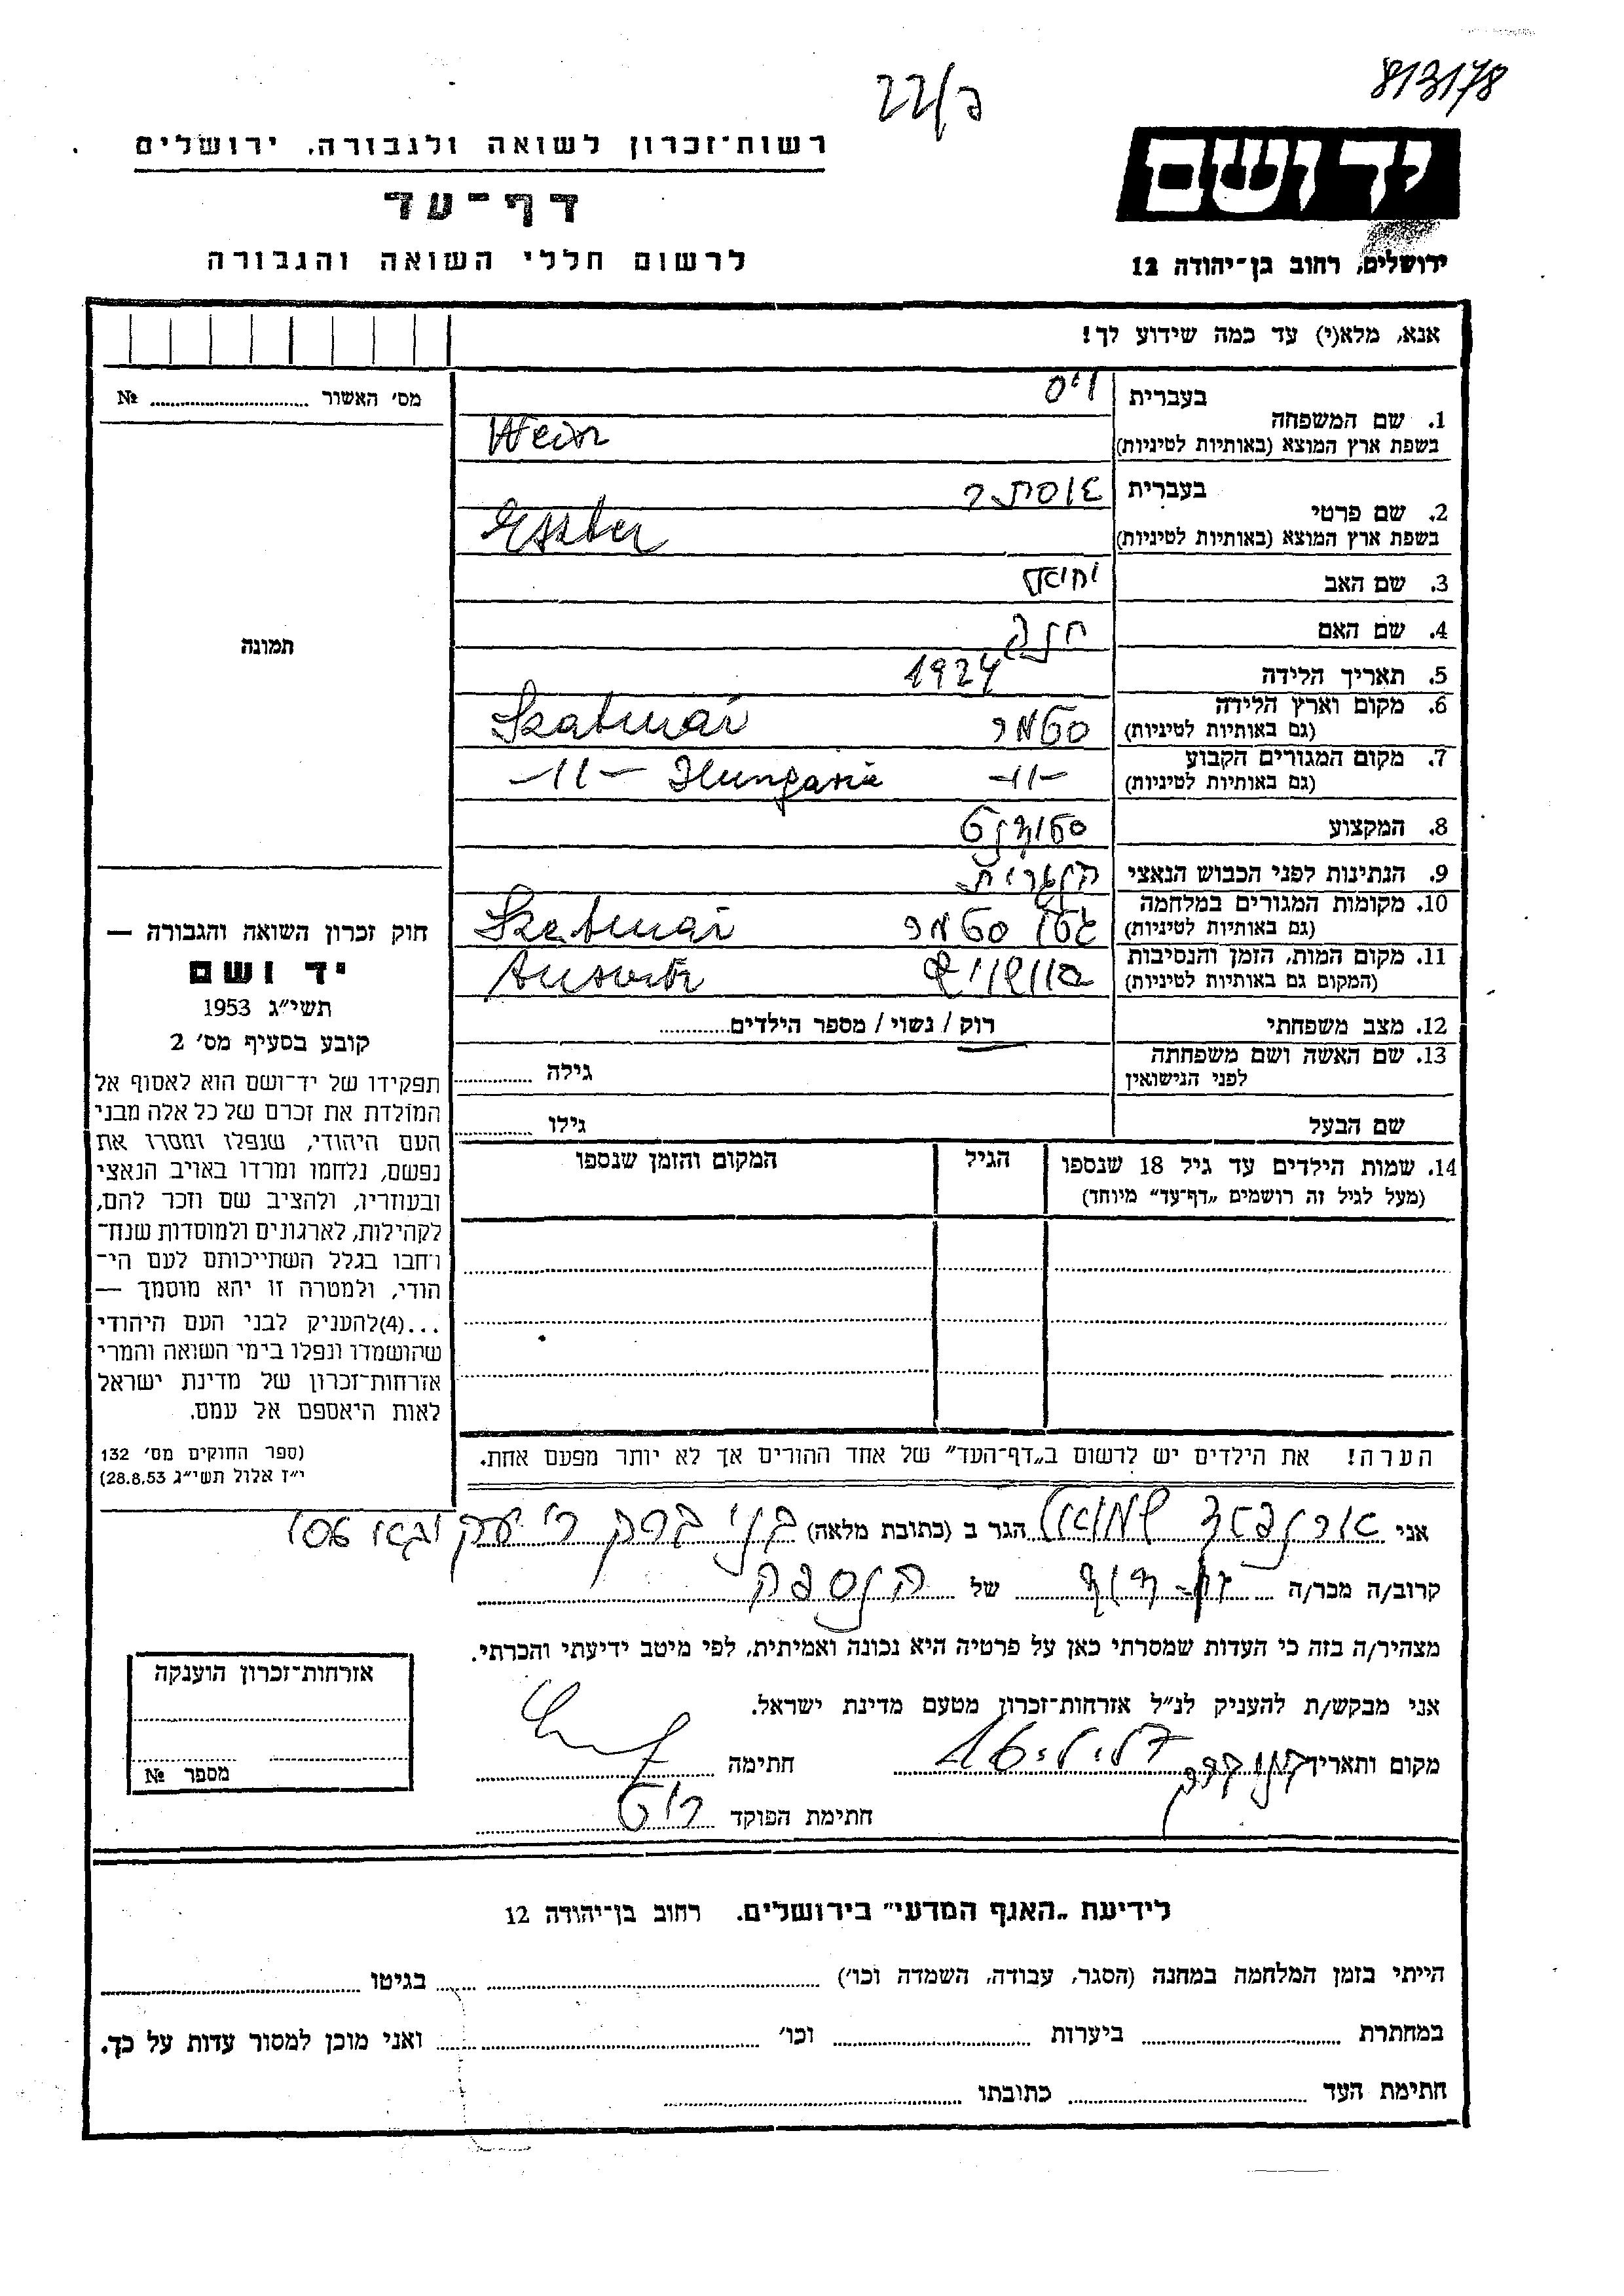 813178
22/ב
רשות־זכרון לשואה ולגבורה, ירושלים
דף־עד
לרשום חללי השואה והגבורה
יד ושם
ירושלים, רחוב בן־יהודה 12
אנא, מלא(י) עד כמה שידוע לך!
מס' האשור № ..........
תמונה
1. שם המשפחה
בעברית וייס
בשפת ארץ המוצא (באותיות לטיניות)
2. שם פרטי
בעברית אוסתר
בשפת ארץ המוצא (באותיות לטיניות) Eszter
3. שם האב
4. שם האם חנה
5. תאריך הלידה 1924
6. מקום וארץ הלידה סטמר Szatmár
(גם באותיות לטיניות)
7. מקום המגורים הקבוע -11- -11- Hungaria
(גם באותיות לטיניות)
8. המקצוע סטודנט
9. הנתינות לפני הכבוש הנאצי
10. מקומות המגורים במלחמה גטו סטמר Szatmár
(גם באותיות לטיניות)
11. מקום המות, הזמן והנסיבות
(המקום גם באותיות לטיניות)
12. מצב משפחתי רוק / נשוי / מספר הילדים..........
13. שם האשה ושם משפחתה גילה ..........
לפני הנישואין
שם הבעל גילו ..........
14. שמות הילדים עד גיל 18 שנספו הגיל המקום והזמן שנספו
(מעל לגיל זה רושמים „דף־עד” מיוחד)
חוק זכרון השואה והגבורה —
יד ושם
תשי"ג 1953
קובע בסעיף מס' 2
תפקידו של יד־ושם הוא לאסוף אל
המולדת את זכרם של כל אלה מבני
העם היהודי, שנפלו ומסרו את
נפשם, נלחמו ומרדו באויב הנאצי
ובעוזריו, ולהציב שם וזכר להם,
לקהילות, לארגונים ולמוסדות שנח־
רחבו בגלל השתייכותם לעם הי־
הודי, ולמטרה זו יהא מוסמך —
...(4)להעניק לבני העם היהודי
שהושמדו ונפלו בימי השואה והמרי
אזרחות־זכרון של מדינת ישראל
לאות היאספם אל עמם.
(ספר החוקים מס' 132
י"ז אלול תשי"ג 28.8.53)
הערה! את הילדים יש לרשום ב„דף־העד” של אחד ההורים אך לא יותר מפעם אחת.
אני שמואל הגר ב (כתובת מלאה) בני ברק
קרוב/ה מכר/ה של הנספה
מצהיר/ה בזה כי העדות שמסרתי כאן על פרטיה היא נכונה ואמיתית, לפי מיטב ידיעתי והכרתי.
אני מבקש/ת להעניק לנ"ל אזרחות־זכרון מטעם מדינת ישראל.
מקום ותאריך חתימה
חתימת הפוקד
אזרחות־זכרון הוענקה
מספר №
לידיעת „האגף המדעי” בירושלים, רחוב בן־יהודה 12
הייתי בזמן המלחמה במחנה (הסגר, עבודה, השמדה וכו') .......... בגיטו ..........
במחתרת .......... ביערות .......... וכו' .......... ואני מוכן למסור עדות על כך.
חתימת העד .......... כתובתו ..........